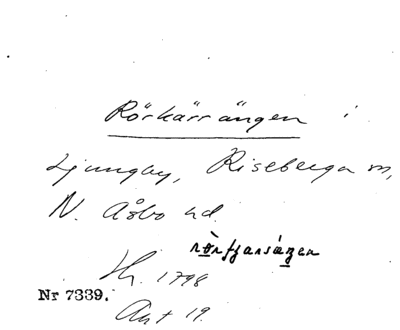 Rörkärrängen i
Ljungby, Riseberga sn,
N. Åsbo hd.
Hr. 1798
Nr 7339.
Akt 19.